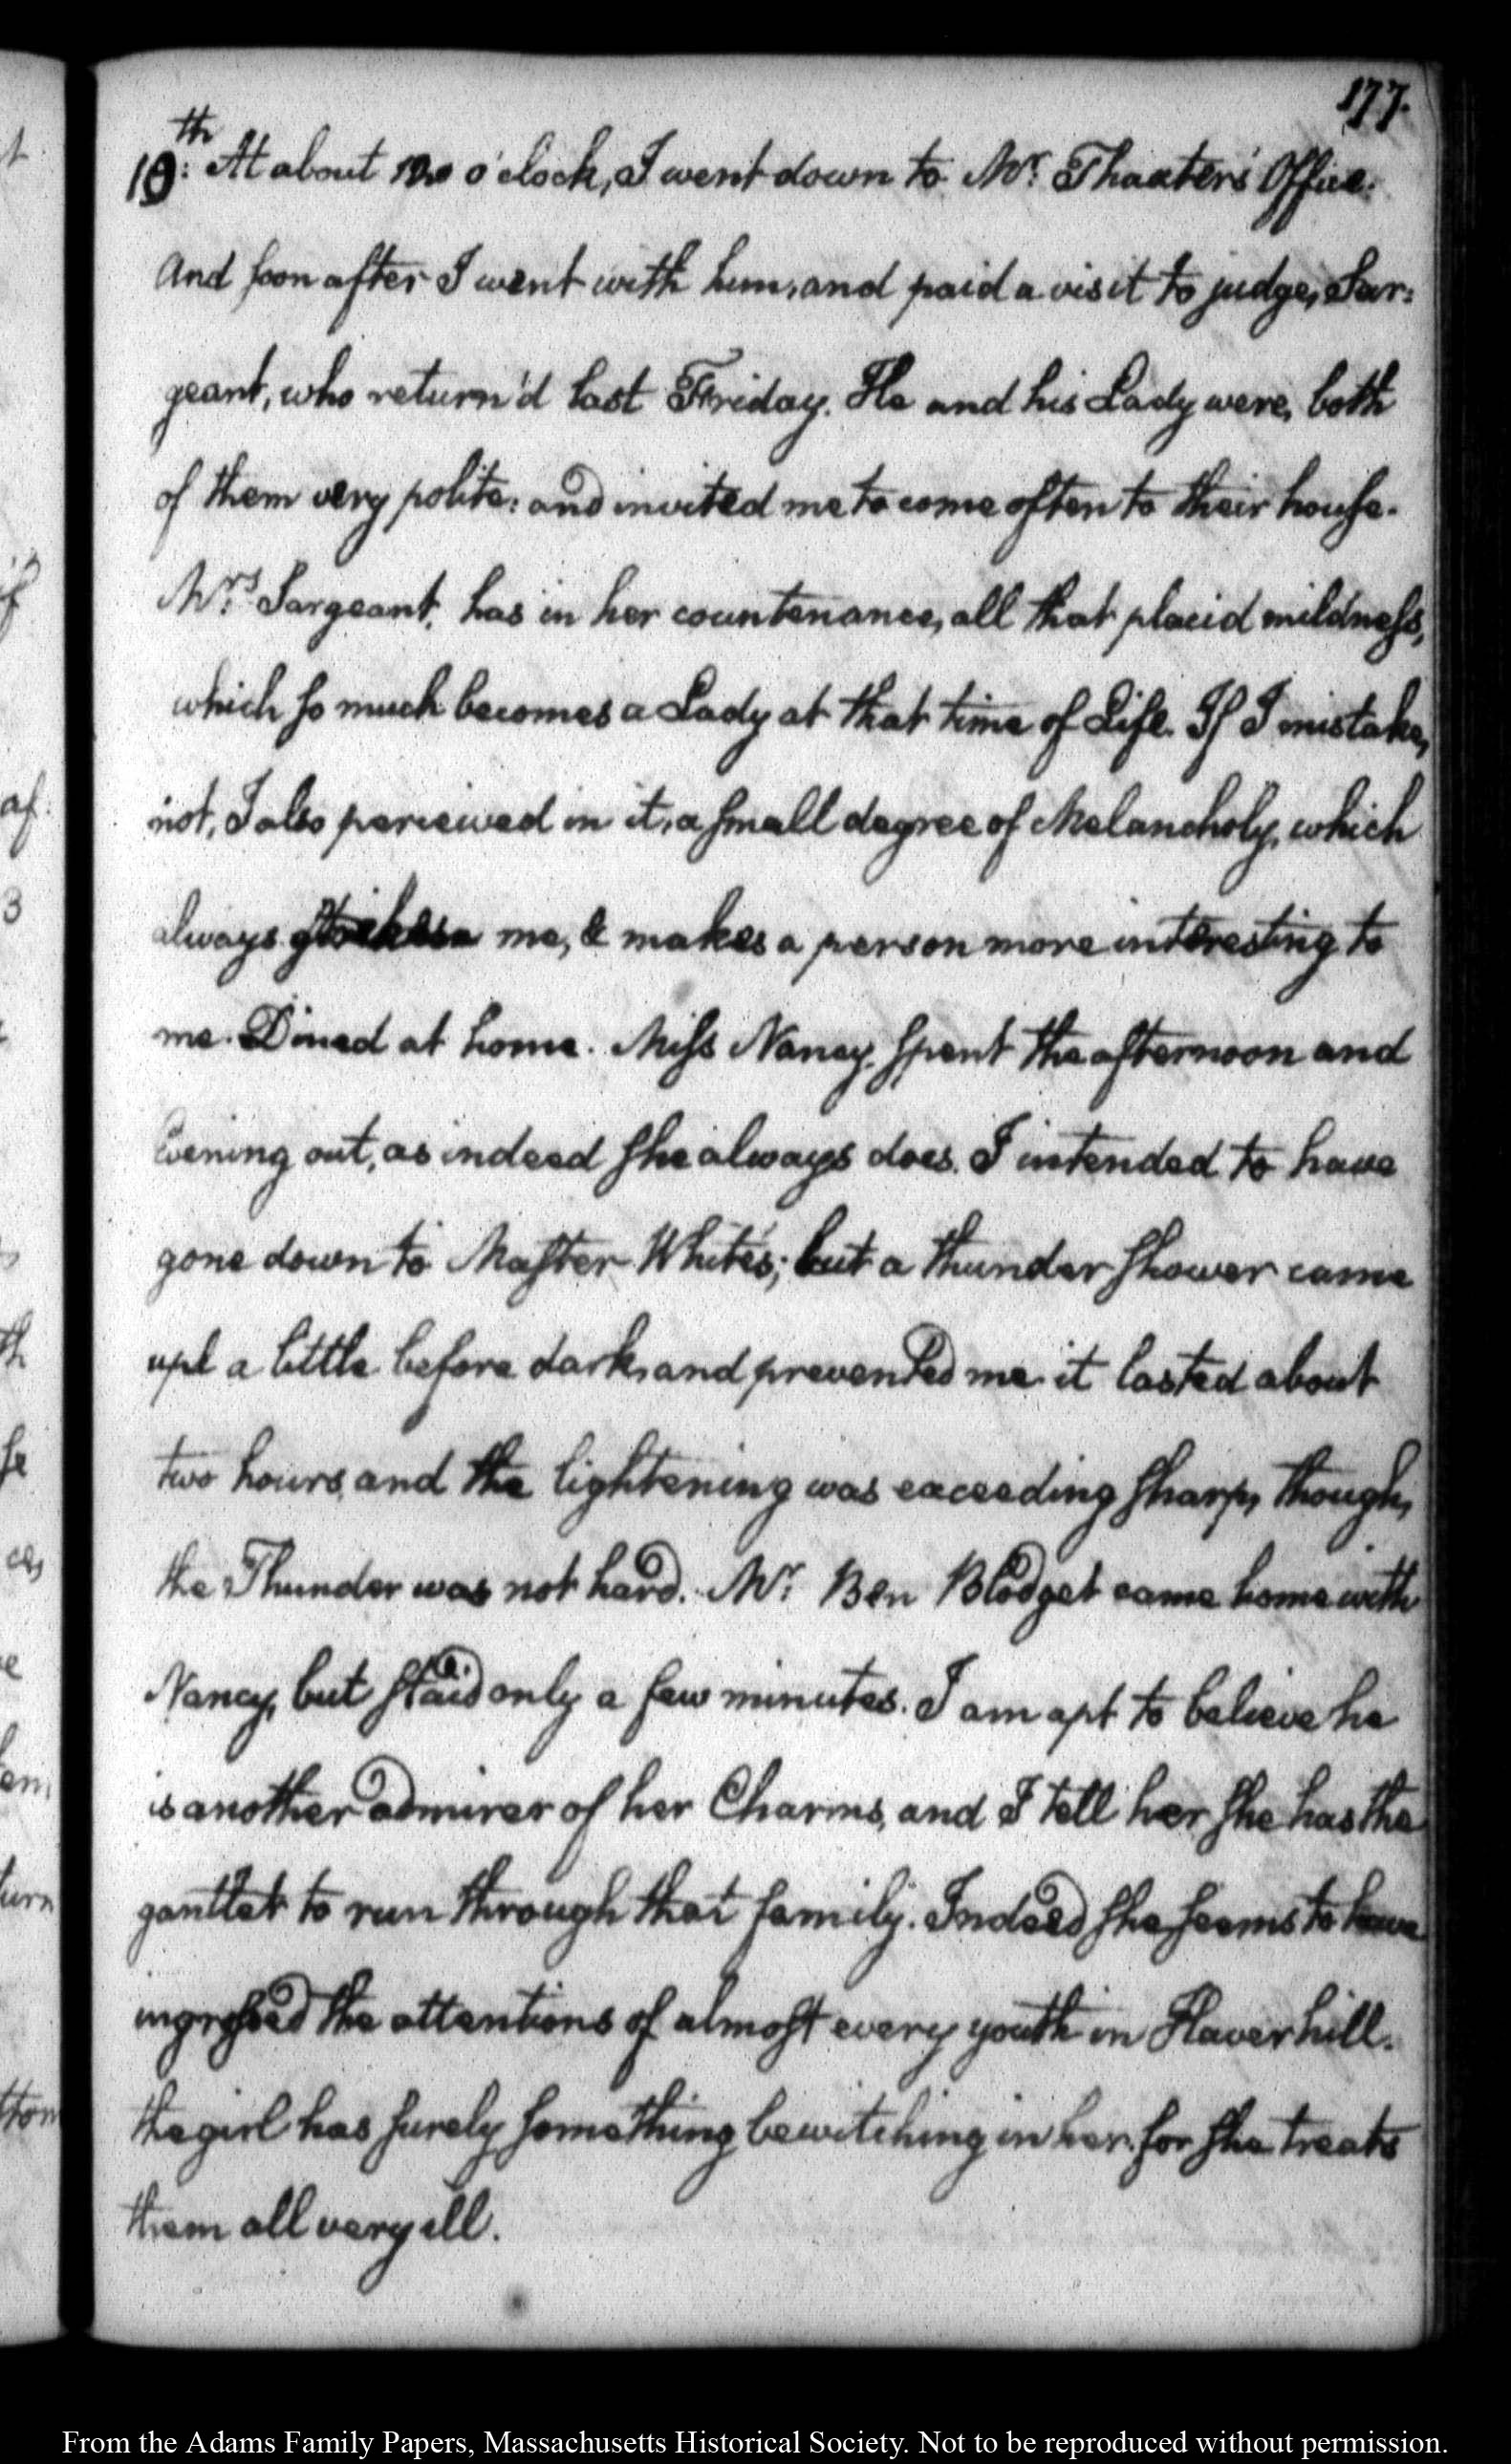 177.
10th: At about o'clock, I went down to Mr: Thaxter's Office.
And soon after I went with him, and paid a visit to judge, Sar:
geant, who return'd last Friday. He and his Lady were, both
of them very polite: and invited me to come often to their house.
Mrs: Sargeant, has in her countenance, all that placid mildness,
which so much becomes a Lady at that time of Life. If I mistake,
not, I also perceived in it, a small degree of Melancholy, which
always me, & makes a person more interesting to
me. Dined at home. Miss Nancy, spent the afternoon and
Evening out, as indeed she always does. I intended to have
gone down to Master White's; but a thunder shower came
up a little before dark, and prevented me. it lasted about
two hours, and the lightening was exceeding sharp, though,
the Thunder was not hard. Mr: Ben Blodget came home with
Nancy, but staid only a few minutes. I am apt to believe he
is another admirer of her Charms, and I tell her she has the
gantlet to run through that family. Indeed she seems to have
ingrossed the attentions of almost every youth in Haverhill.
the girl has surely something bewitching in her. for she treats
them all very ill.
From the Adams Family Papers, Massachusetts Historical Society. Not to be reproduced without permission.